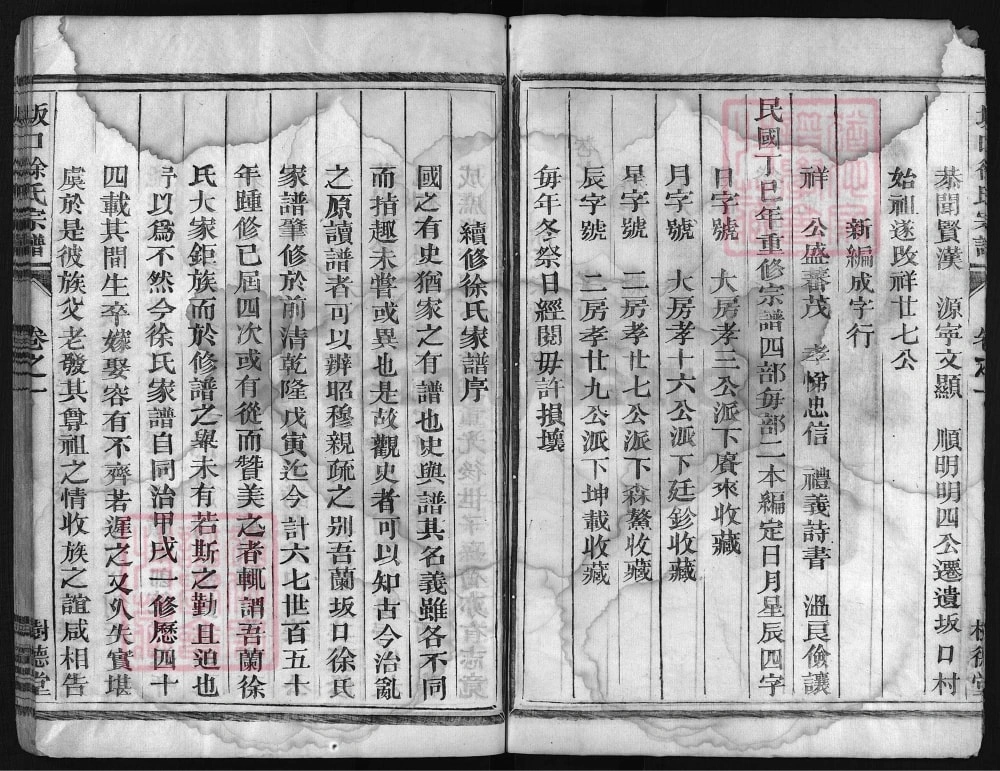 恭聞賢漢　源寧文顯　順明明四公遷遺坂口村
始祖遂政祥廿七公
新編成字行
祥　公盛蕃茂　孝悌忠信　禮義詩書　溫良儉讓
民國丁巳年重修宗譜四部每部二本編定日月星辰四字
日字號　大房孝三公派下賡來收藏
月字號　大房孝十六公派下廷鈐收藏
星字號　二房孝廿七公派下森鰲收藏
辰字號　二房孝廿九公派下坤載收藏
每年冬祭日經閱毋許損壞
續修徐氏家譜序
國之有史猶家之有譜也史與譜其名義雖各不同
而指趣未嘗或異也是故觀史者可以知古今治亂
之原讀譜者可以辨昭穆親疏之別吾蘭坂口徐氏
家譜肇修於前清乾隆戊寅迄今計六七世百五十
年踵修已屆四次或有從而贊美之者輒謂吾蘭徐
氏大家鉅族而於修譜之舉未有若斯之勤且迫也
予以為不然今徐氏家譜自同治甲戌一修歷四十
四載其間生卒嫁娶容有不齊若遲之又久失實堪
虞於是彼族父老發其尊祖之情收族之誼咸相告
坂口徐氏宗譜　卷之一　樹德堂